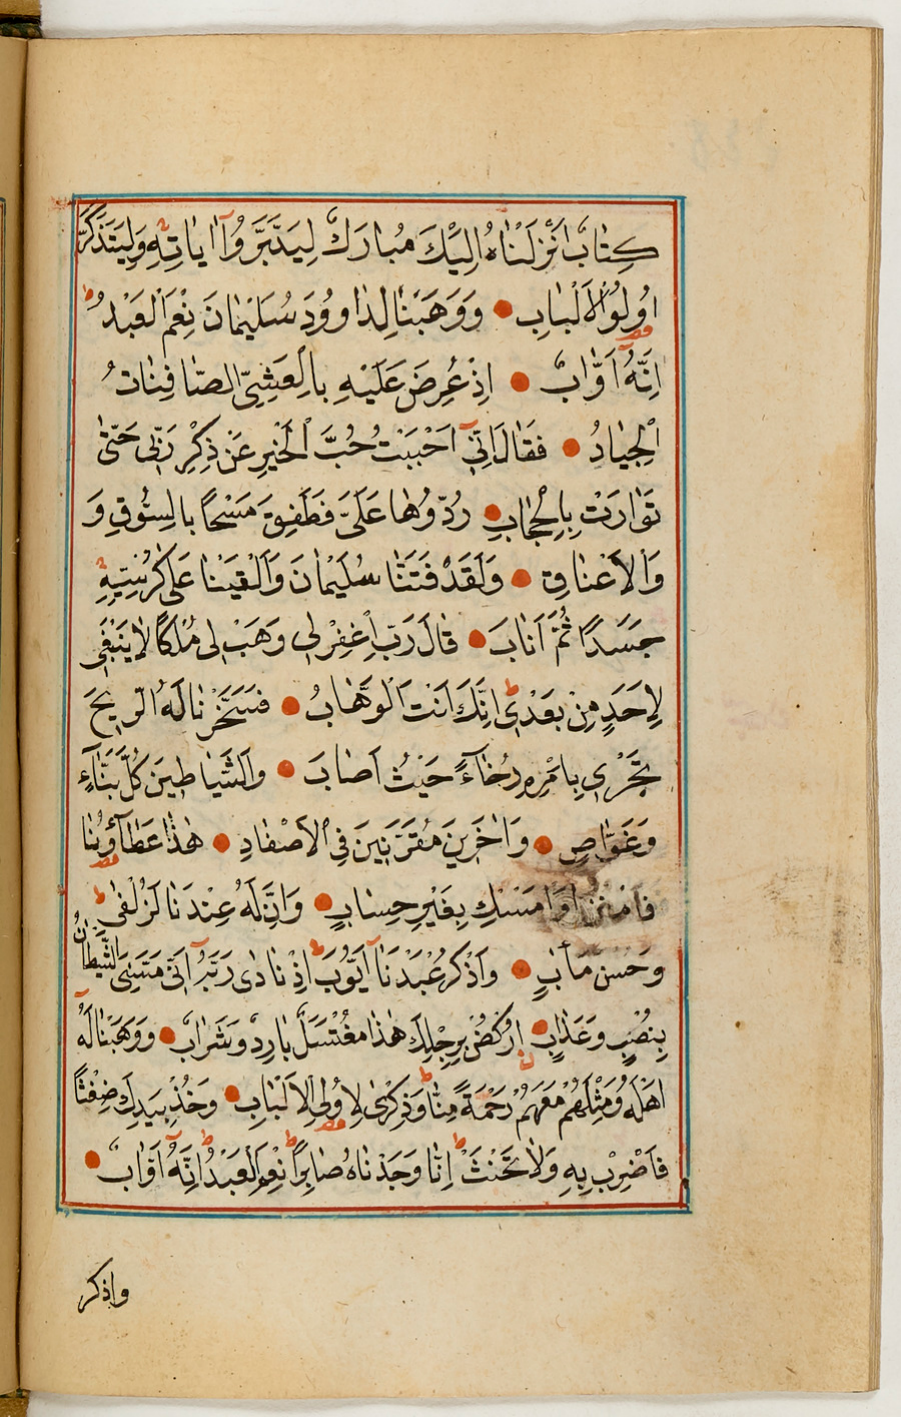 كِتَابٌ اَنْزَلْنَاهُ اِلَيْكَ مُبَارَكٌ لِيَدَّبَّرَُوآ اٰيَاتِهٖ وَلِيَتَذَكَّرَ
اُولُوا الْاَلْبَابِ ووَهَبْنَا لِدَاوودَ سُلَيْمَانَ نِعْمَ الْعَبْدُ ط
اِنَّهُٓ اَوَّابٌ اِذْ عُرِضَ عَلَيْهِ بِالْعَشِيِّ الصَّافِنَاتُ
الْجِيَادُ فَقَالَ اِنِّٓي اَحْبَبْتُ حُبَّ الْخَيْرِ عَنْ ذِكْرِ رَبِّي حَتّٰى
تَوَارَتْ بِالْحِجَابِ رُدُّوهَا عَلَيَّ فَطَفِقَ مَسْحًا بِالسُّوقِ وَ
وَالْاَعْنَاقِ وَلَقَدْ فَتَنَّا سُلَيْمَانَ وَاَلْقَيْنَا عَلٰى كُرْسِيِّهٖ
جَسَدًا ثُمَّ اَنَابَ قَالَ رَبِّ اغْفِرْلِي وَهَبْ لِي مُلْكًا لَا يَنْبَغِي
لِاَحَدٍ مِنْ بَعْدِي ط اِنَّكَ اَنْتَ الْوَهَّابُ فَسَخَّرْنَا لَهُ الرِّيحَ
تَجْرِي بِاَمْرِهِ رُخَآءً حَيْثُ اَصَابَ وَالشَّيَاطِينَ كُلَّ بَنَّآءٍ
وَغَوَّاصٍ وَاٰخَرِينَ مُقَرَّنِينَ فِي الْاَصْفَادِ هٰذَا عَطَآؤُنَا
فَامْنُنْ اَوْ اَمْسِكْ بِغَيْرِ حِسَابٍ وَاِنَّ لَهُ عِنْدَنَا لَزُلْفٰى
وَحُسْنَ مَاٰبٍ وَاذْكُرْ عَبْدَنَآ اَيُّوبَ ط اِذْ نَادٰى رَبَّهُٓ اَنِّي مَسَّنِيَ الشَّيْطَانُ
بِنُصْبٍ وَعَذَابٍ اُرْكُضْ بِرِجْلِكَ هٰذَا مُغْتَسَلٌ بَارِدٌ وَشَرَابٌ وَوَهَبْنَا لَهُٓ
اَهْلَهُ وَمِثْلَهُمْ مَعَهُمْ رَحْمَةً مِنَّا وَذِكْرٰى لِاُولِي الْاَلْبَابِ وَخُذْ بِيَدِكَ ضِغْثًا
فَاضْرِبْ بِهِ وَلَا تَحْنَثْ ط اِنَّا وَجَدْنَاهُ صَابِرًا ط نِعْمَ الْعَبْدُ ط اِنَّهُٓ اَوَّابٌ
واذكر